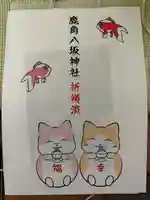 鹿角八坂神社
祈祷済
福
幸